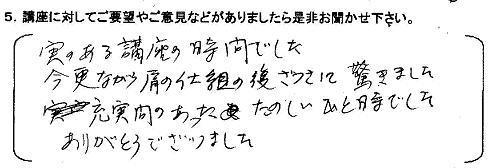 5. 講座に対してご要望やご意見などがありましたら是非お聞かせ下さい。
実のある講座の時間でした
今更ながら肩の仕組の複さつさに驚きました
充実間のあった たのしいひと時でした
ありがとうございました